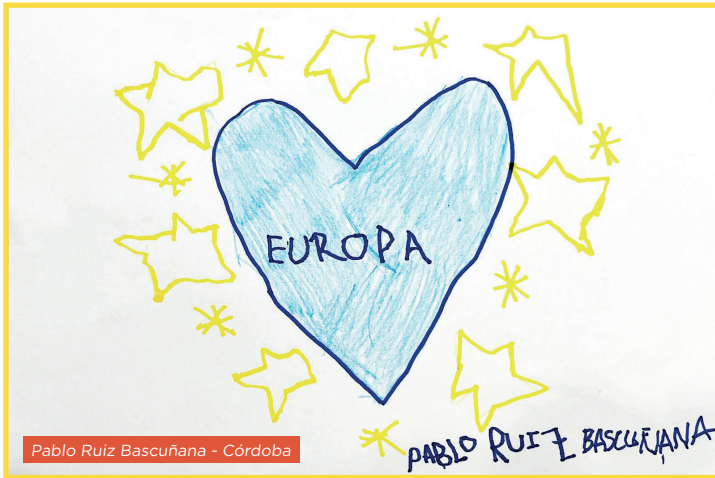 EUROPA
PABLO RUIZ BASCUÑANA
Pablo Ruiz Bascuñana - Córdoba